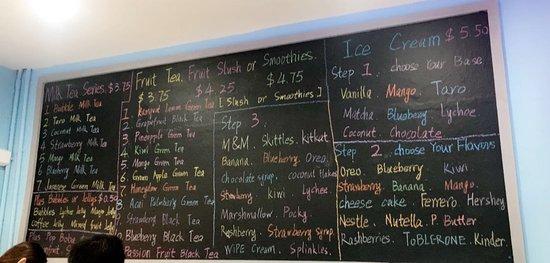 Milk Tea Series. $3.75
1 Bubble Milk Tea
2 Taro Milk Tea
3 Coconut Milk Tea
4 Strawberry Milk Tea
5 Mango Milk Tea
6 Blueberry Milk Tea
7 Japanese Green Milk Tea
Plus Bubbles or Jellys $0.50
Bubbles Lychee Jelly Mango Jelly
Coffee Jelly Mixed fruit Jelly
Plus Pop Boba
Fruit Tea. Fruit Slush or Smoothies.
$3.75 $4.25 $4.75
[Slush or Smoothies]
1 Green Tea
2 Grapefruit Black Tea
3 Pineapple Green Tea
4 Kiwi Green Tea
5 Mango Green Tea
6 Green Apple Green Tea
7 Honeydew Green Tea
8 Acai Black Tea
9 Strawberry Black Tea
Blueberry Black Tea
Passion Fruit Black Tea
Step 3.
M&M. Skittles. kitkat
Banana. Blueberry. Oreo.
Chocolate syrup. coconut flakes
Strawberry. kiwi. Lychee.
Marshmallow. Pocky.
Rashberry. Strawberry syrup.
Wipe Cream. Splinkles.
Ice Cream $5.50
Step 1. choose Your Base.
Vanilla Mango. Taro
Matcha Blueberry Lychee
Coconut. Chocolate
Step 2. choose Your Flavors
Oreo. Blueberry. Kiwi
Strawberry. Banana. Mango.
cheese cake. Ferrero. Hershey
Nestle. Nutella. P. Butter
Rashberries. ToBLERONE. Kinder.